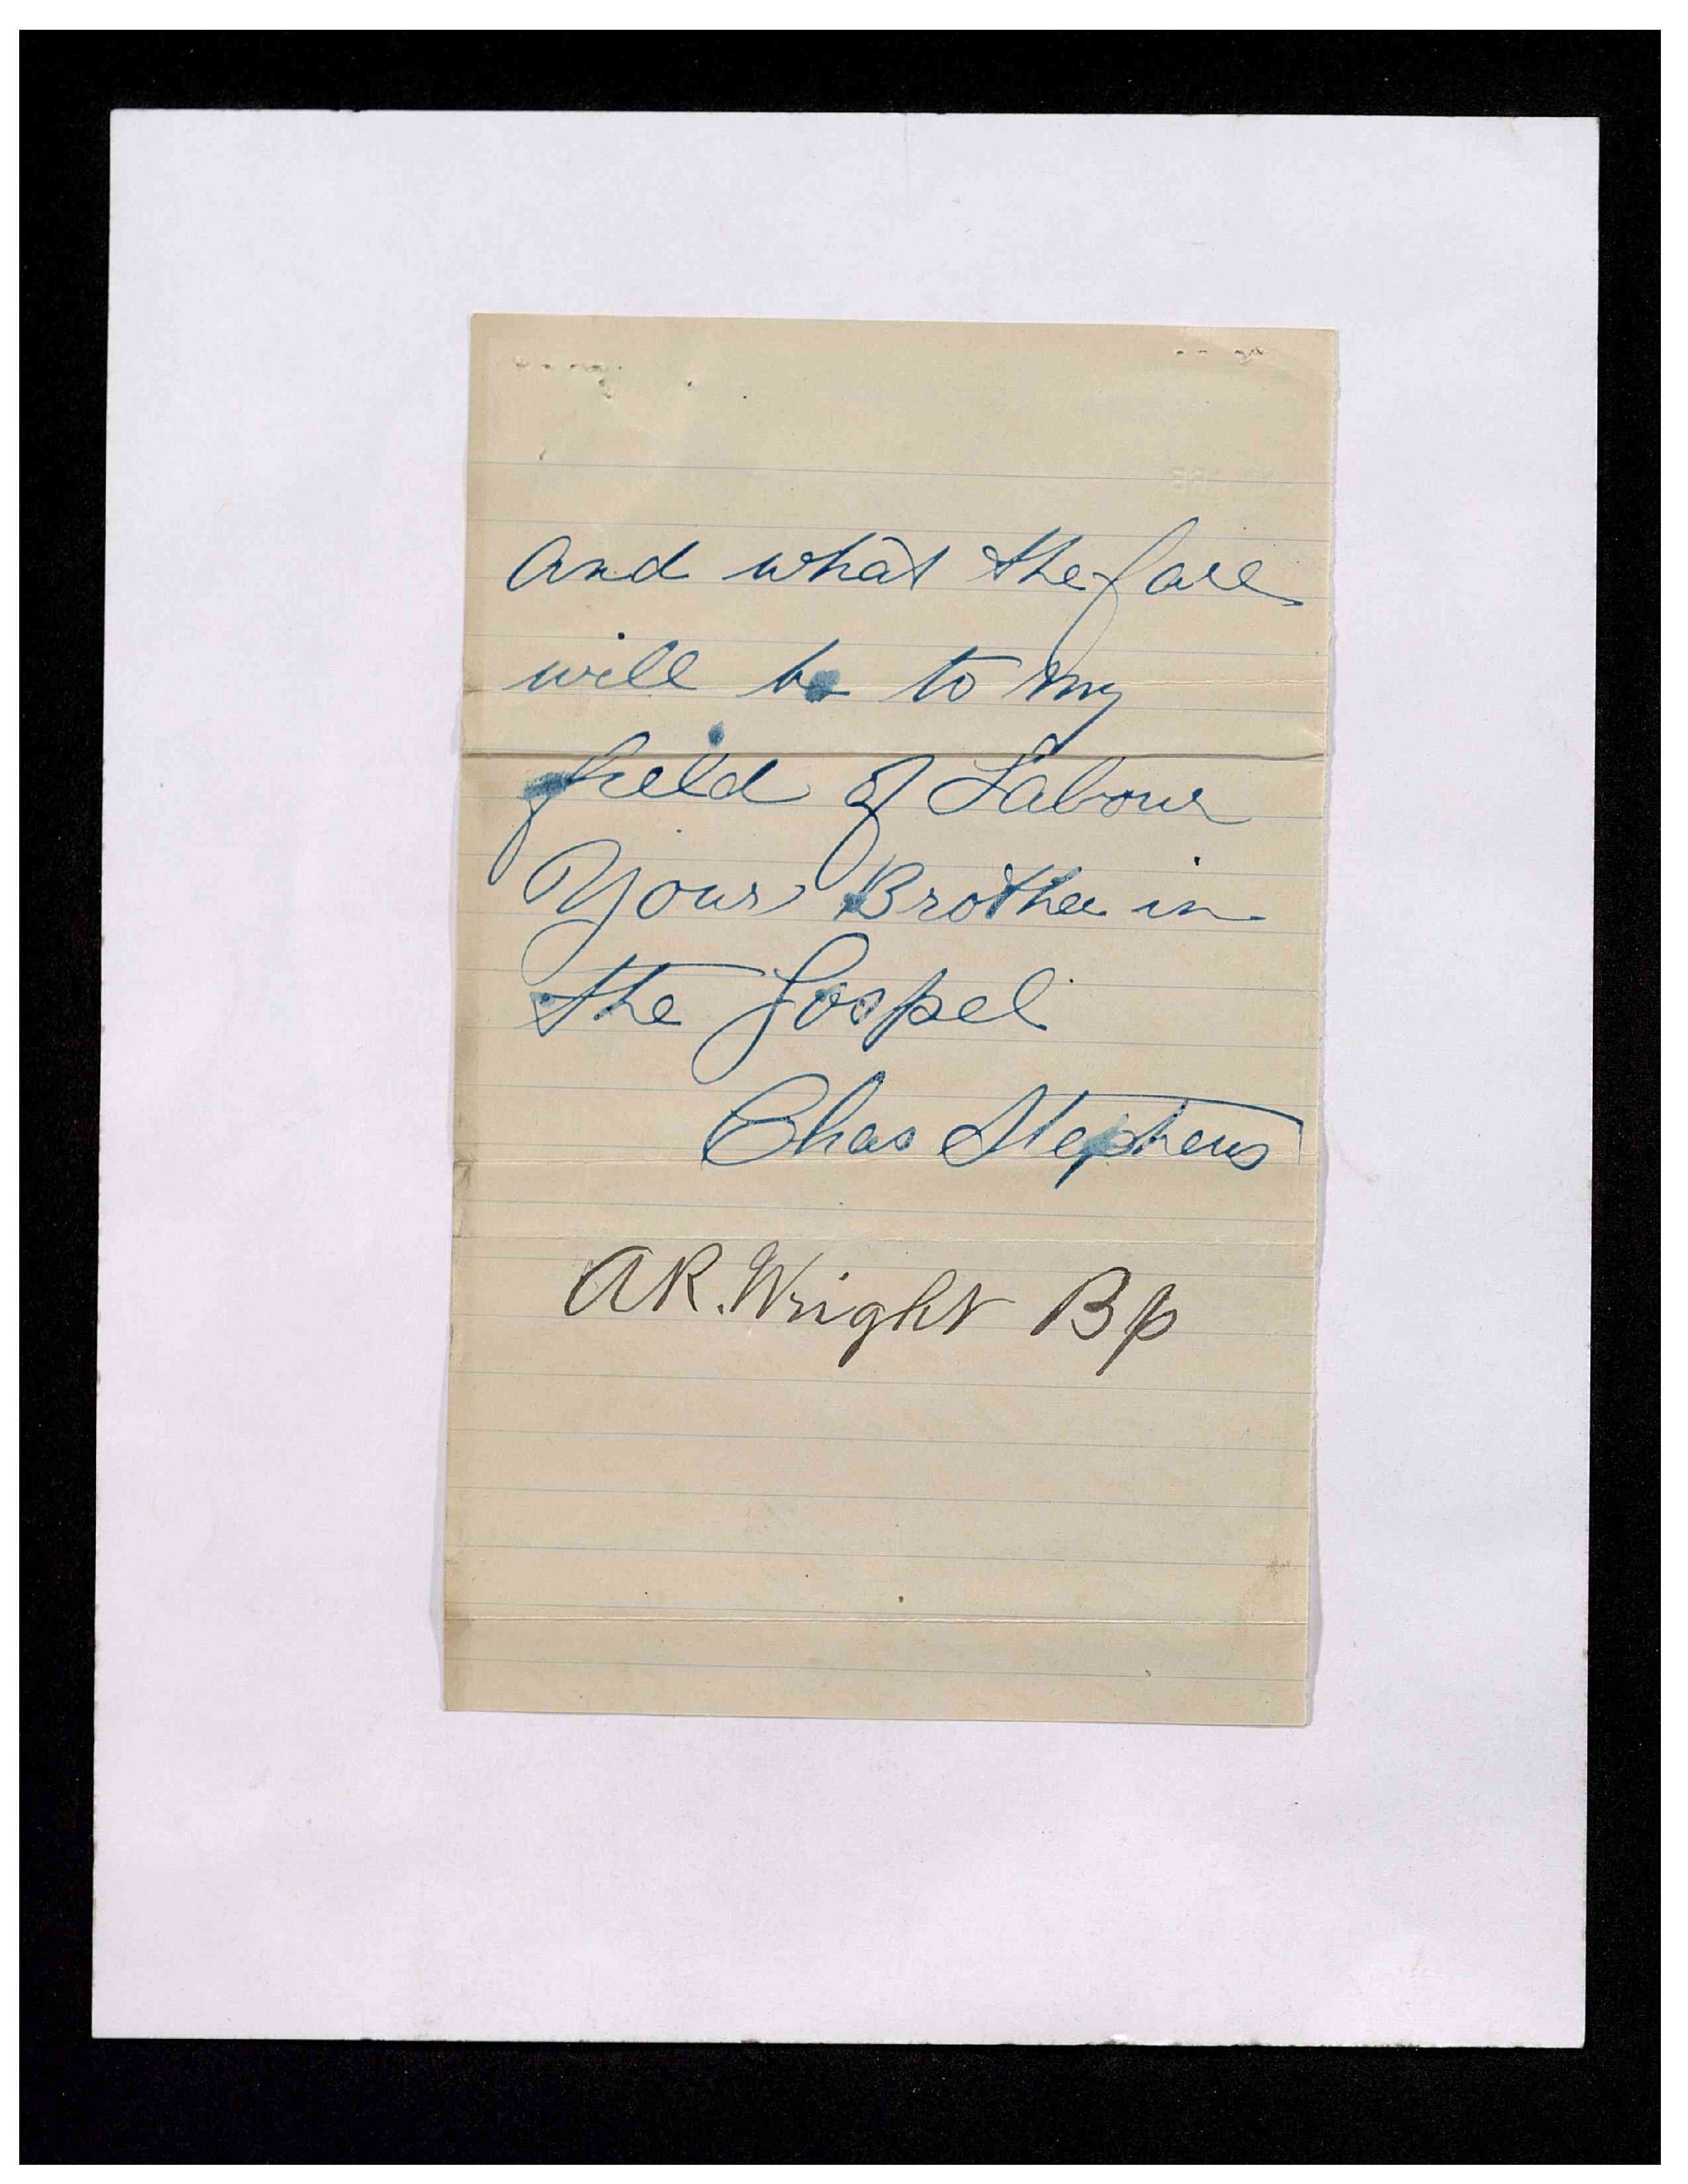 and what the fare
will be to my
field of Labour
Your Brother in
the Gospel
Chas Stephens
A R. Wright Bp